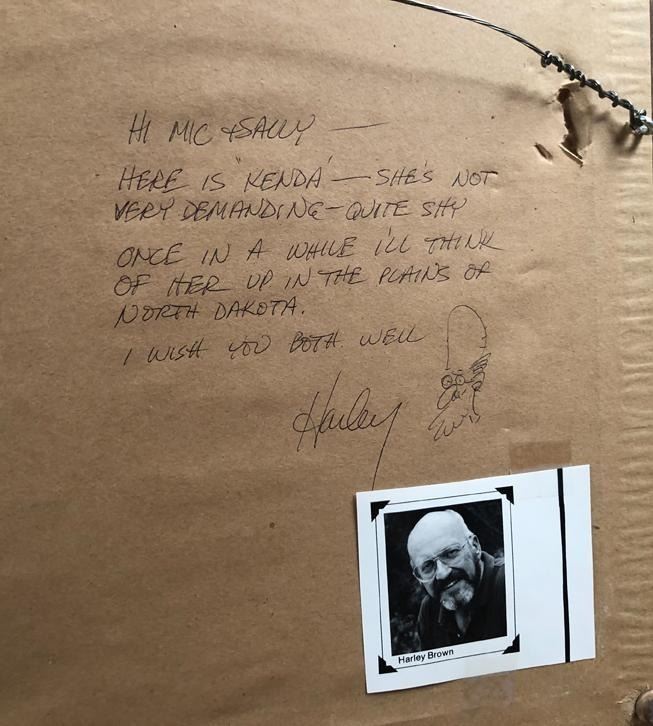 HI MIC & SALLY —
HERE IS "KENDA" — SHE'S NOT
VERY DEMANDING — QUITE SHY
ONCE IN A WHILE I'LL THINK
OF HER UP IN THE PLAINS OF
NORTH DAKOTA.
I WISH YOU BOTH WELL
Harley
Harley Brown